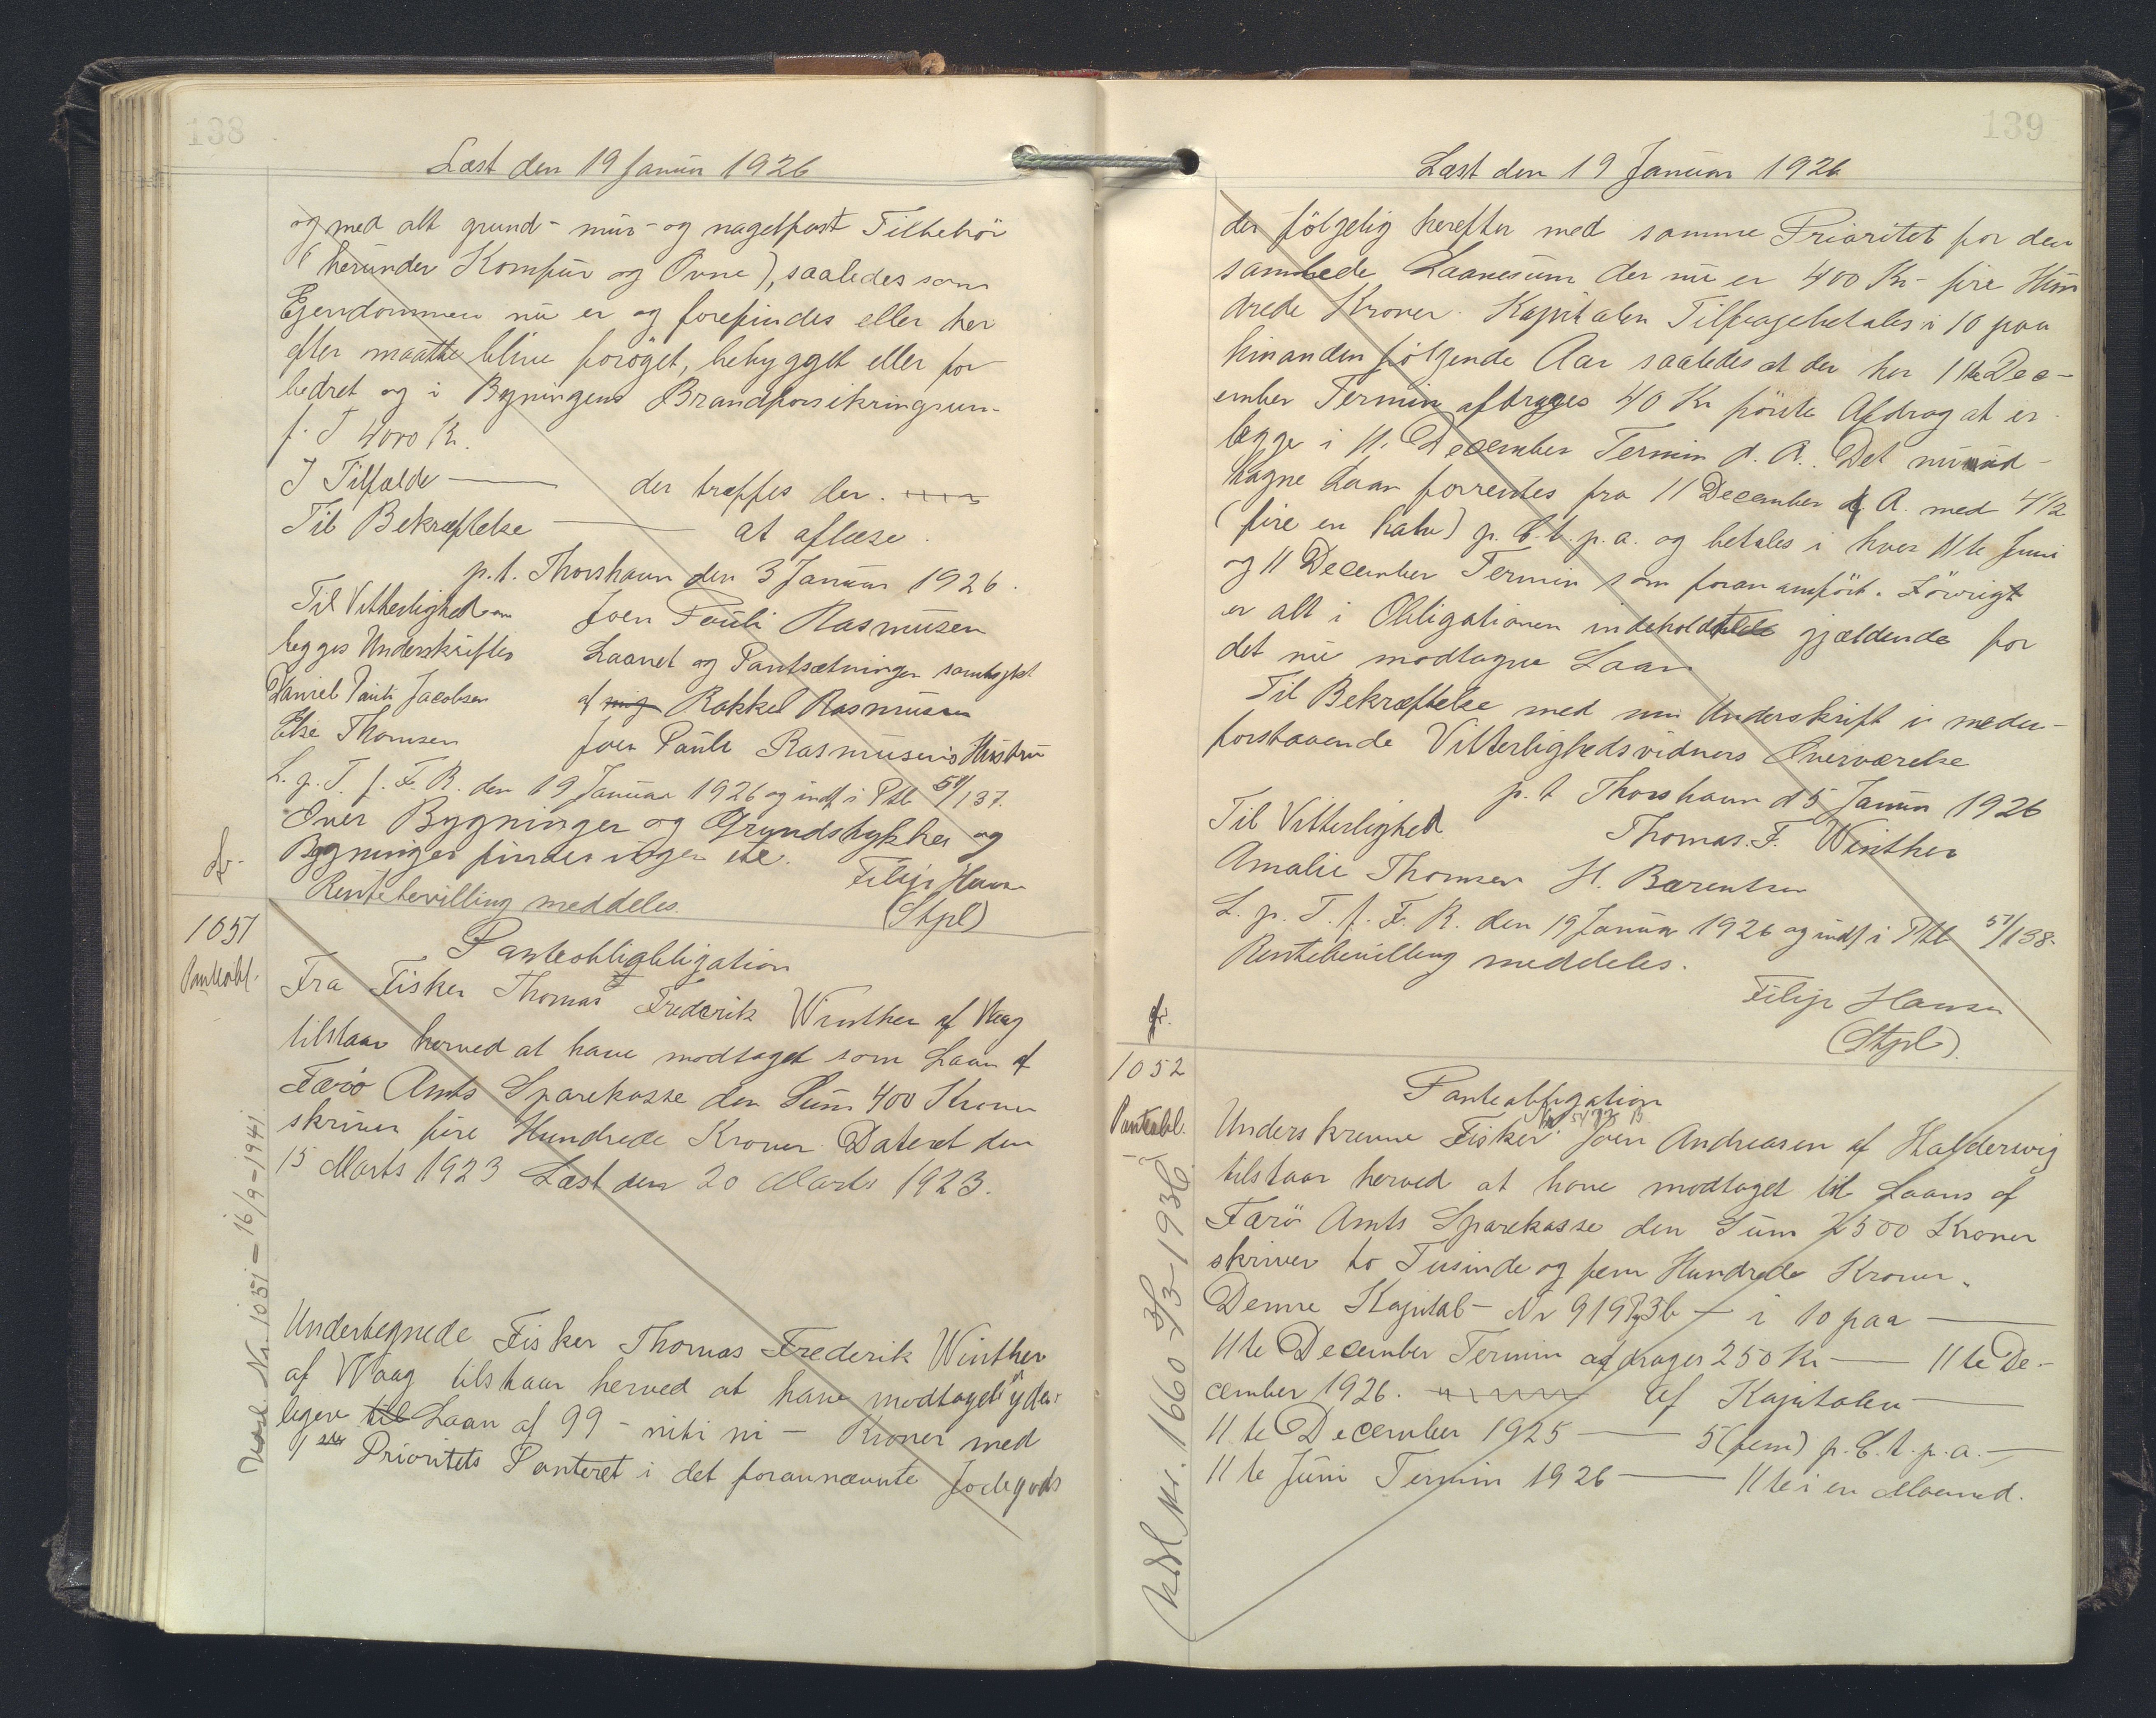 138
Læst den 19 Januar 1926
og med alt grund- mur- og nagelfast Tilbehör
(herunder Komfur og Ovne), saaledes som
Ejendommen nu er og forefindes eller her
efter maatte blive forøget, bebygget eller for
bedret og i Bygningens Brandforsikringssum
f. T 4000 Kr.
I Tilfælde — der træffes der.
Til Bekræftelse — at aflæse.
p.t. Thorshavn den 3 Januar 1926.
Til Vitterlighed om Joen Pauli Rasmusen
begges Underskrifter Laanet og Pantsætningen samtykt
Daniel Pauli Jacobsen af mig Rakkel Rasmusen
Else Thomsen Joen Pauli Rasmusens Hustru
L. p. T. f. F. R. den 19 Januar 1926 og indf i Ptb 51/137.
Over Bygninger og Grundstykker og
Bygninger findes ingen
Filip Hansen
Rentebevilling meddeles.
(Stpl)
1051
Panteobl.
Panteobligbligation
Fra Fisker Thomas Frederik Winther af Waag
tilstaar herved at have modtaget som Laan af
Færö Amts Sparekasse den Sum 400 Kroner
skriver fire Hundrede Kroner. Dateret den
15 Marts 1923 Læst den 20 Marts 1923.
Undertegnede Fisker Thomas Frederik Winther
af Waag tilstaar herved at have modtaget yder-
ligere til Laan af 99 - niti ni - Kroner med
1ste Prioritets Panteret i det forannævnte Jodegods
Nr. 1051 = 16/9-1941
139
Læst den 19 Januar 1926
der fölgelig herefter med samme Prioritet for den
samlede Laanesum der nu er 400 Kr - fire Hun
drede Kroner. Kapitalen Tilbagebetales i 10 paa
hinanden fölgende Aar saaledes at der hver 11te Dec-
ember Termin afdrages 40 Kr förste Afdrag at er
lægge i 11. December Termin d. A. Det nu
tagne Laan forrentes fra 11 December d. A. med 4½
(fire en halv) p. C. t. p. a. og betales i hver 11te Juni
og 11 December Termin som foran anfört. Iövrigt
er alt i Obligationen indeholdt gjældende for
det nu modtagne Laan
Til Bekræftelse med min Underskrift i neden-
forstaaende Vitterlighedsvidners Overværelse
p. t Thorshavn d 5 Januar 1926
Til Vitterlighed Thomas. F. Winther
Amalie Thomsen H. Bærentsen
L. p. T. f. F. R. den 19 Januar 1926 og indf i Ptb 51/138.
Rentebevilling meddeles.
Filip Hansen
(Stpl)
1052
Panteobl.
Panteobligation
Underskrevne Fisker Joen Andreasen af Halderswig
tilstaar herved at have modtaget til Laans af
Færö Amts Sparekasse den Sum 2500 Kroner
skriver to Tusinde og fem Hundrede Kroner.
Denne Kapital - Nr 919 Pg 36 — i 10 paa —
11te December Termin afdrages 250 Kr — 11te De-
cember 1926. Af Kapitalen —
11te December 1925 — 5 (fem) p. C. t. p. a. —
11te Juni Termin 1926 — 11te i en Maaned.
Nr. 1660 3/3-1936